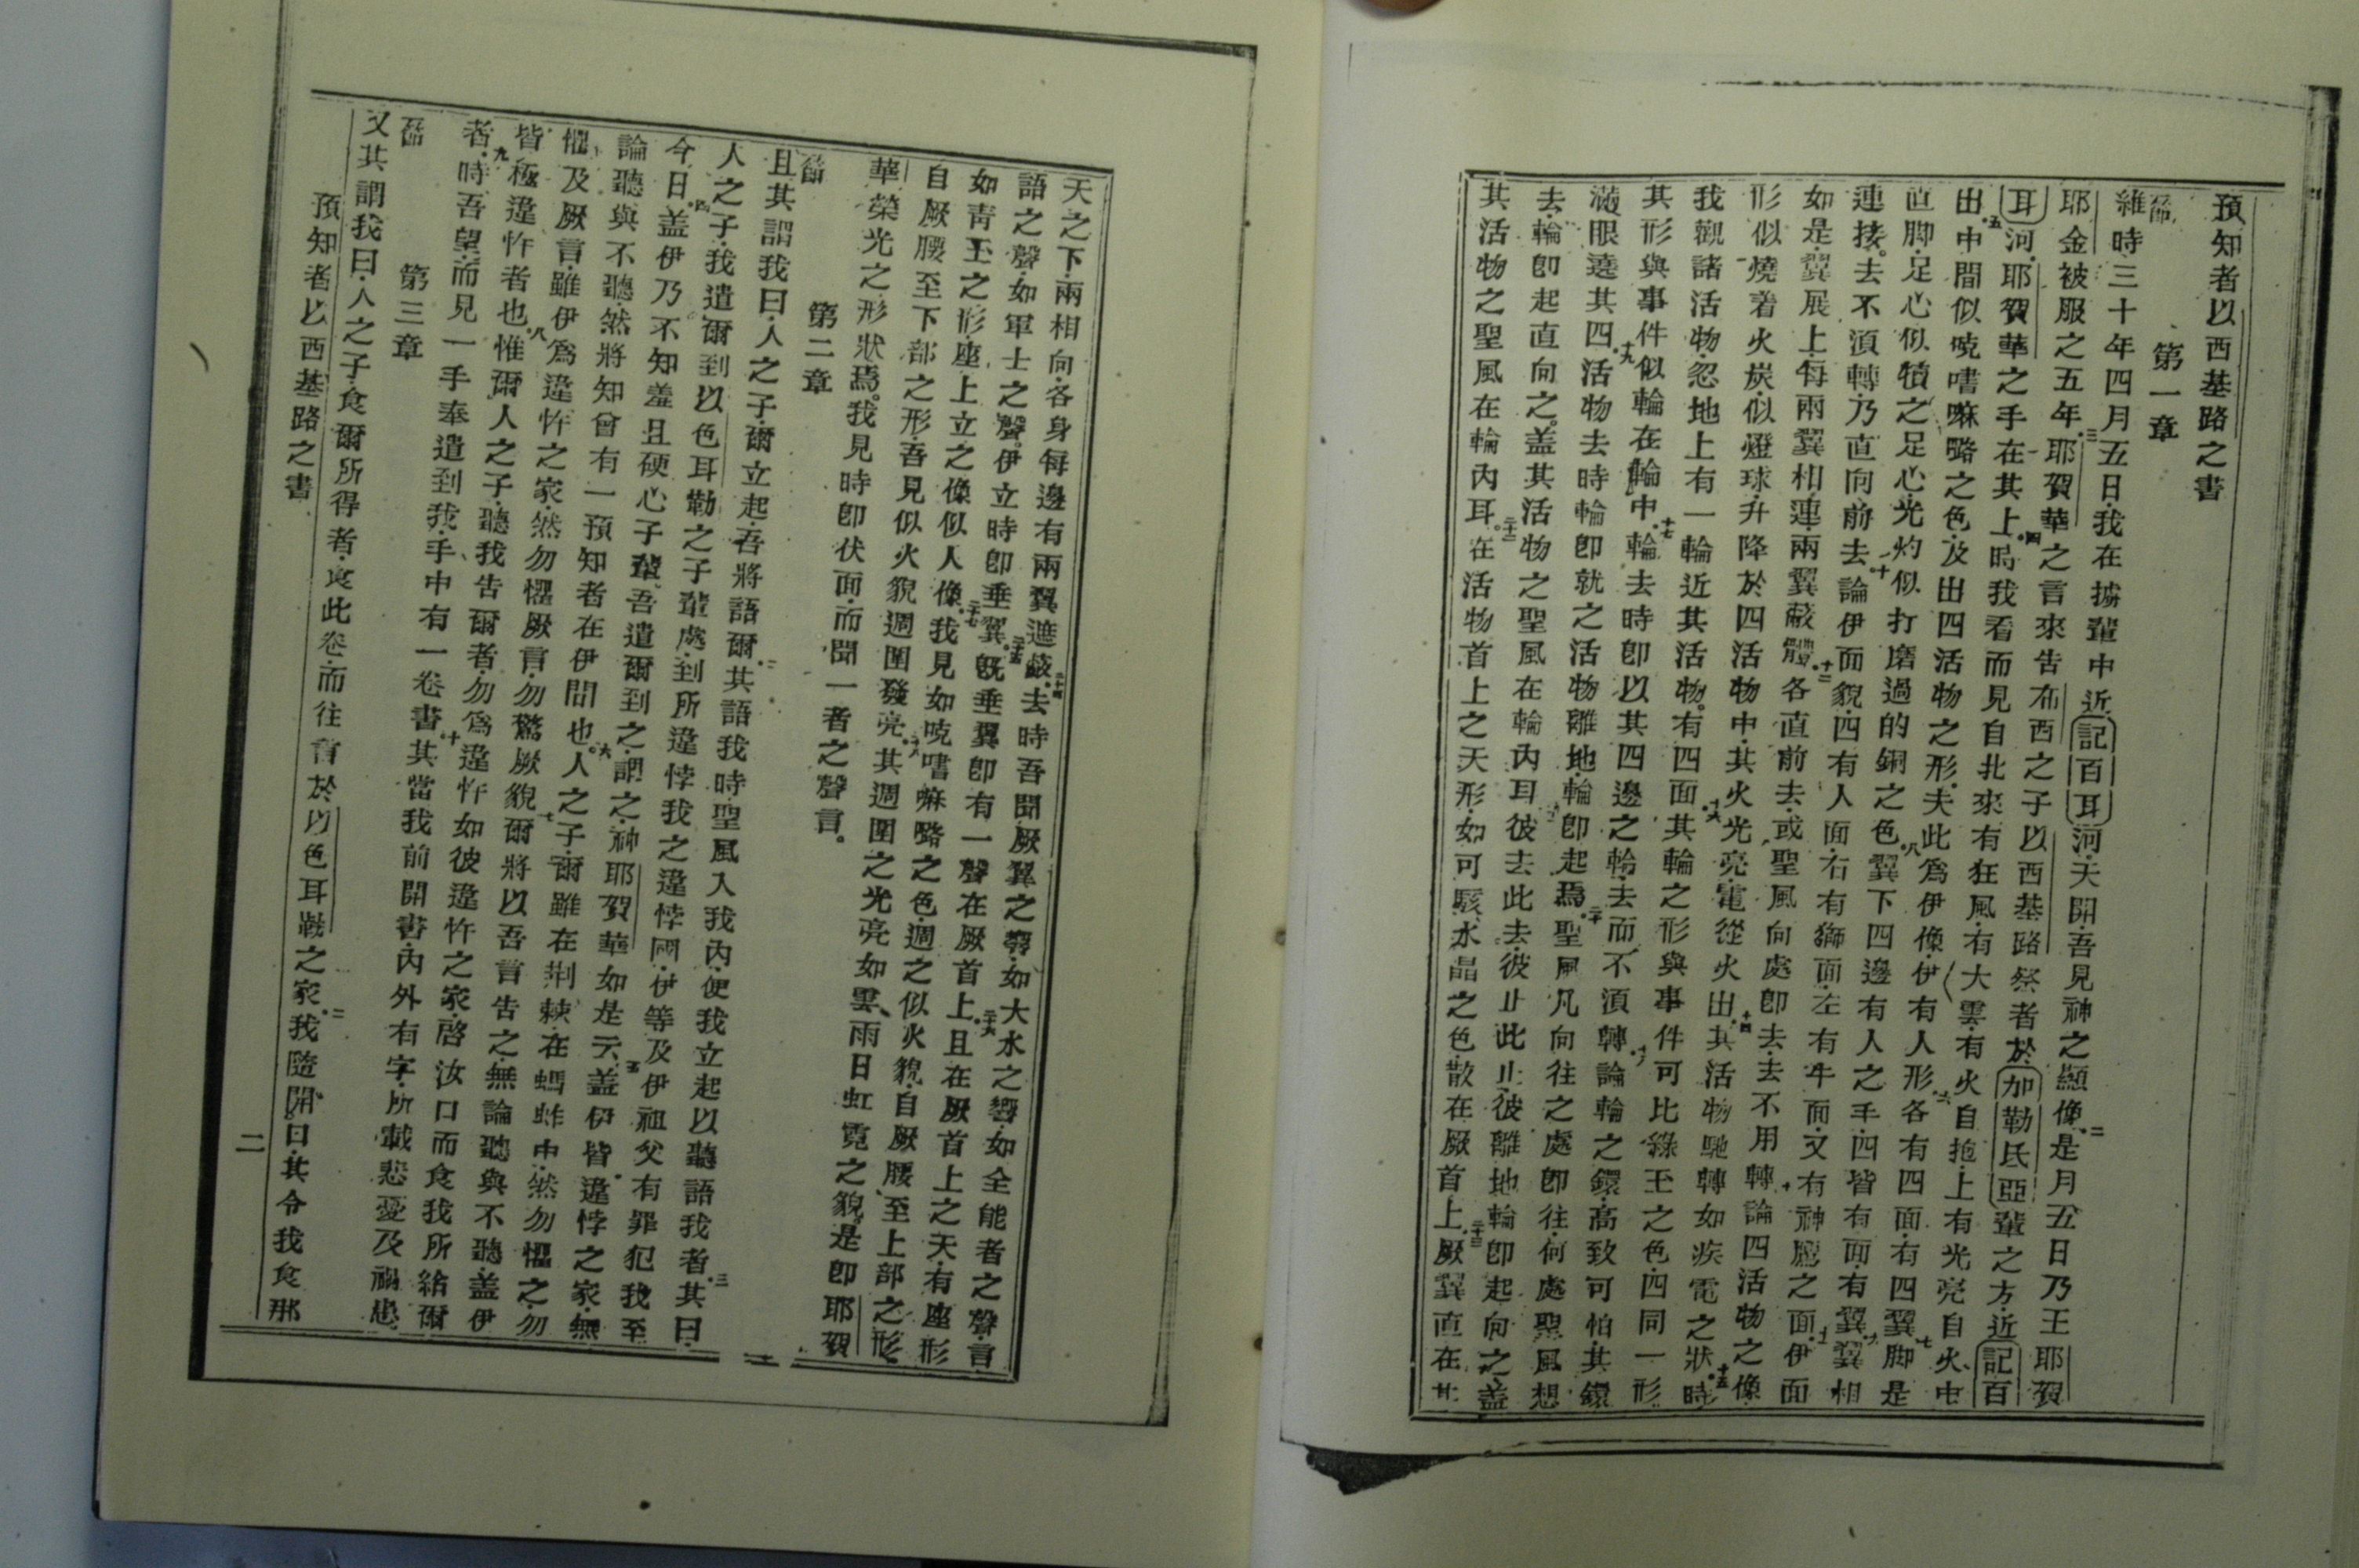 預知者以西基路之書
第一章
節
維時三十年四月五日我在擄輩中近記百耳河天開吾見神之顯像二是月五日乃王耶賀
耶金被服之五年三耶賀華之言來告布西之子以西基路祭者於加勒氏亞輩之方近記百
耳河耶賀華之手在其上四時我看而見自北來有狂風有大雲有火自抱上有光亮自火中
出五中間似唬嗜嘛略之色及出四活物之形夫此為伊像伊有人形六各有四面有四翼七脚是
直脚足心似犢之足心光灼似打磨過的銅之色八翼下四邊有人之手四皆有面有翼九翼相
連接去不須轉乃直向前去十論伊面貌四有人面右有獅面左有牛面又有神鷹之面十一伊面
如是翼展上每兩翼相連兩翼蔽體十二各直前去或聖風向處即去去不用轉十三論四活物之像
形似燒着火炭似燈球升降於四活物中其火光亮電從火出十四其活物馳轉如疾電之狀十五時
我觀諸活物忽地上有一輪近其活物有四面十六其輪之形與事件可比綠玉之色四同一形
其形與事件似輪在輪中十七輪去時即以其四邊之輪去而不須轉十八論輪之鐶高致可怕其鐶
滿眼遶其四十九活物去時輪即就之活物離地輪即起焉二十聖風凡向往之處即往何處聖風想
去輪即起直向之蓋其活物之聖風在輪內耳彼去此去彼止此止彼離地輪即起向之蓋
其活物之聖風在輪內耳二十二在活物首上之天形如可駭水晶之色散在厥首上二十三厥翼直在其
天之下兩相向各身每邊有兩翼遮蔽二十四去時吾聞厥翼之聲如大水之響如全能者之聲言
語之聲如軍士之聲伊立時即垂翼二十五既垂翼即有一聲在厥首上二十六且在厥首上之天有座形
如靑玉之形座上立之像似人像二十七我見如唬嗜嘛略之色週之似火貌自厥腰至上部之形
自厥腰至下部之形吾見似火貌週圍發亮二十八其週圍之光亮如雲雨日虹霓之貌是即耶賀
華榮光之形狀焉我見時即伏面而聞一者之聲言
第二章
節
且其謂我曰人之子爾立起吾將語爾二其語我時聖風入我內便我立起以聽語我者三其曰
人之子我遣爾到以色耳勒之子輩處到所違悖我之違悖國伊等及伊祖父有罪犯我至
今日四蓋伊乃不知羞且硬心子輩吾遣爾到之謂之神耶賀華如是云五蓋伊皆違悖之家無
論聽與不聽然將知曾有一預知者在伊間也六人之子爾雖在荆棘在螞蚱中然勿懼之勿
懼及厥言雖伊為違忤之家然勿懼厥言勿驚厥貌七爾將以吾言告之無論聽與不聽蓋伊
皆極違忤者也八惟爾人之子聽我告爾者勿為違忤如彼違忤之家啓汝口而食我所給爾
者九時吾望而見一手奉遣到我手中有一卷書十其當我前開書內外有字所載悲憂及禍患
第三章
節
又其謂我曰人之子食爾所得者食此卷而往言於以色耳勒之家二我隨開口其令我食那
預知者以西基路之書
一
二